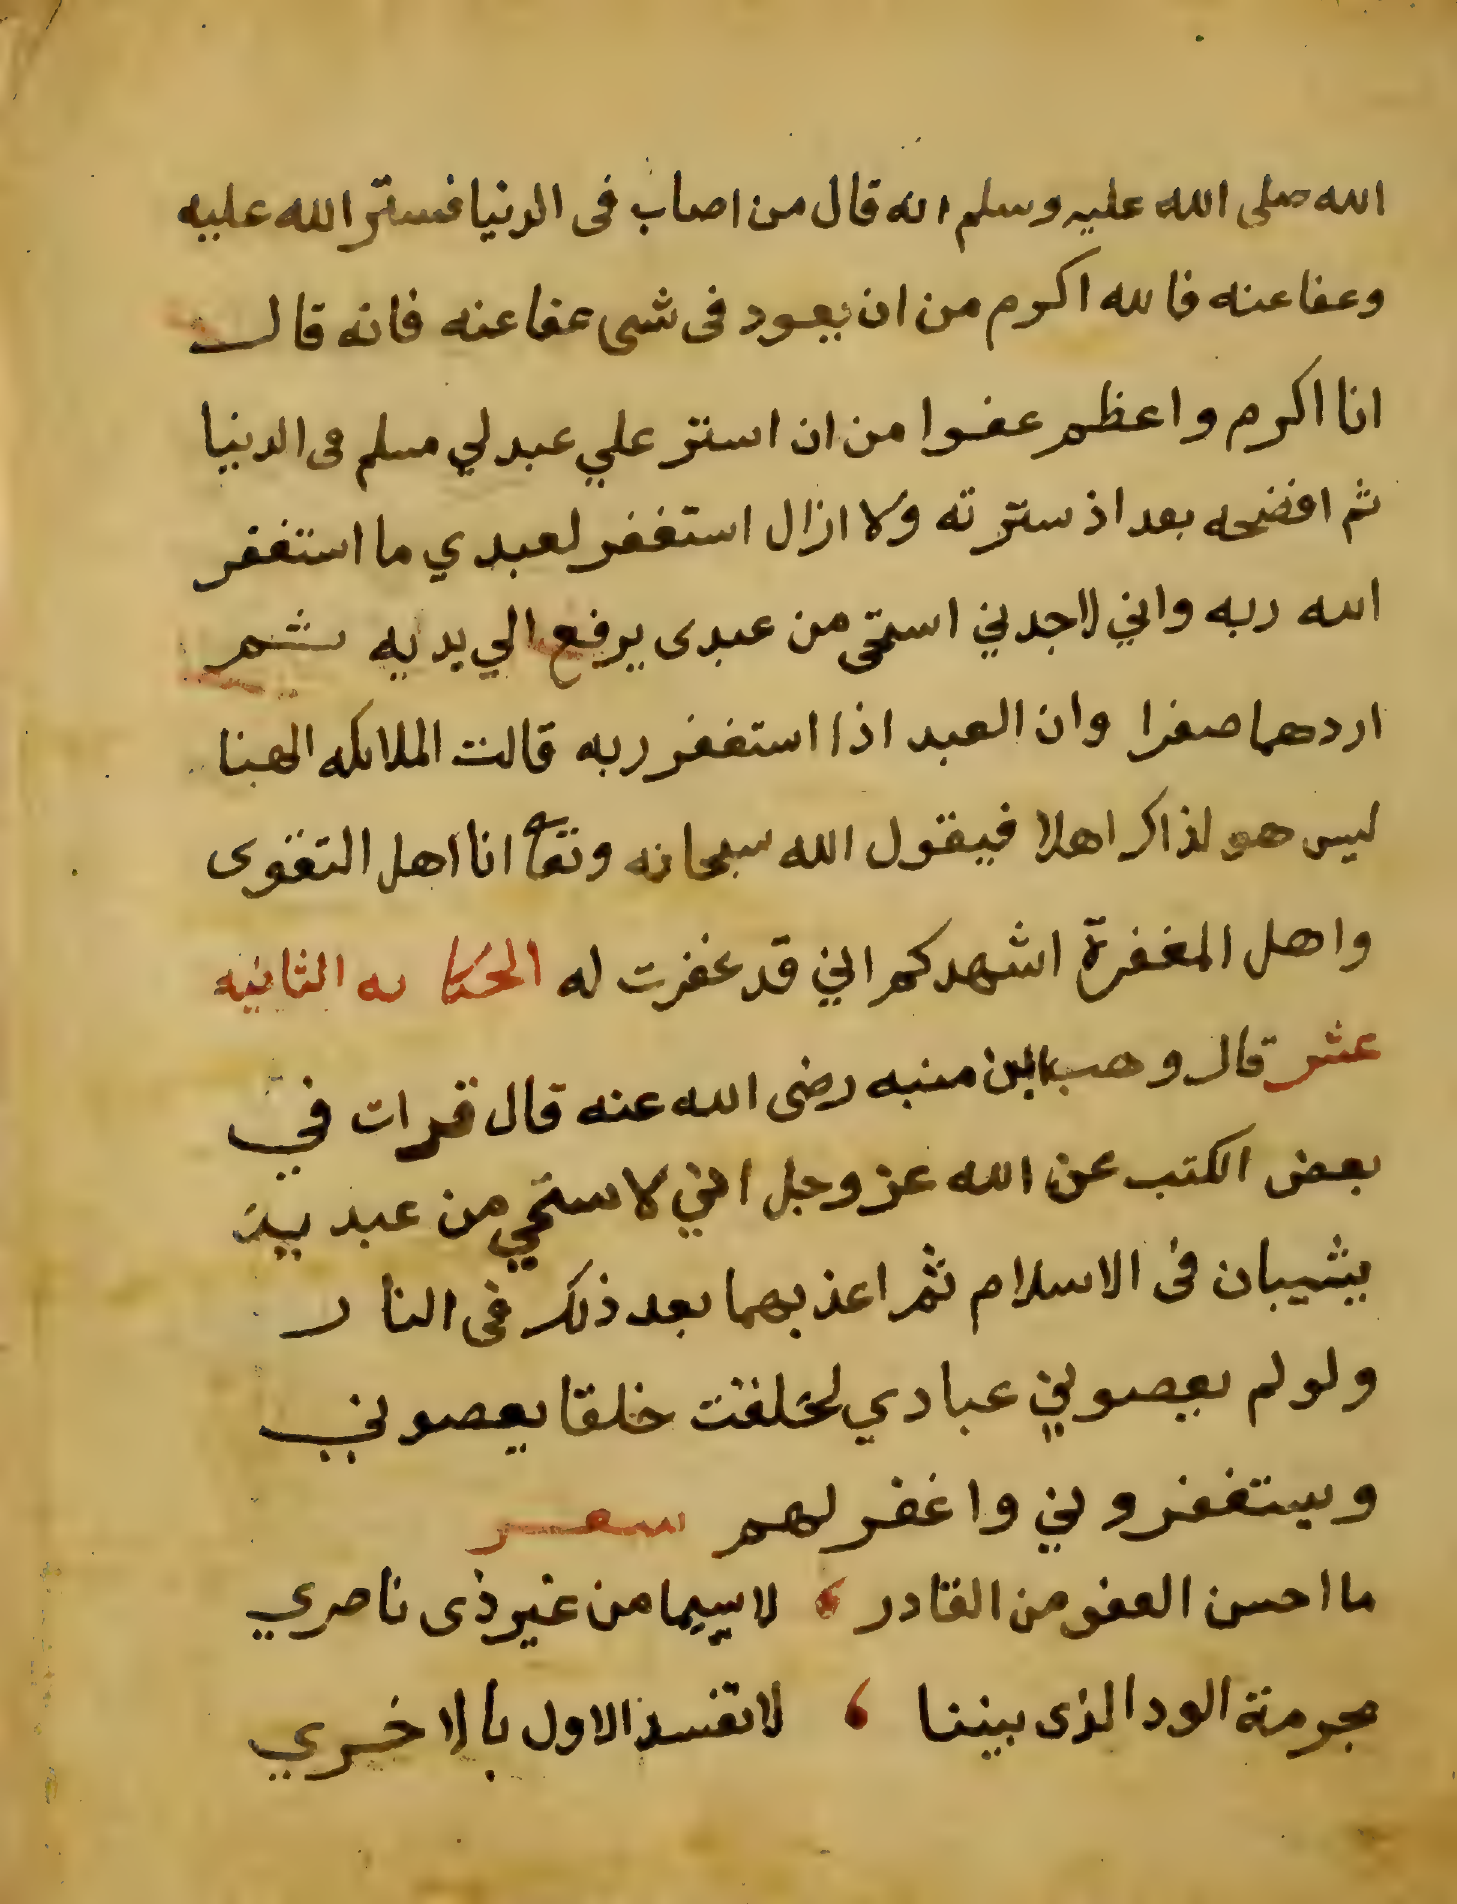 الله صلى الله عليه وسلم انه قال من اصاب فى الدنيا فستر الله عليه
وعفا عنه فالله اكرم من ان يعود فى شى عفا عنه فانه قال
انا اكرم واعظم عفوا من ان استر علي عبد لي مسلم فى الدنيا
ثم افضحه بعد اذ سترته ولا ازال استغفر لعبدي ما استغفر
الله ربه واني لاجدني استحى من عبدى يرفع الي يديه ثم
اردهما صفرا وان العبد اذا استغفر ربه قالت الملائكه الهنا
ليس هو لذاكر اهلا فيقول الله سبحانه وتعا انا اهل التقوى
واهل المغفرة اشهدكم اني قد غفرت له الحكايه الثانيه
عشر قال وهب ابن منبه رضى الله عنه قال قرات في
بعض الكتب عن الله عز وجل اني لاستحي من عبد بين
يشيبان فى الاسلام ثم اعذبهما بعد ذلك فى النار
ولو لم يعصوني عبادي لخلقت خلقا يعصوني
ويستغفروني واغفر لهم شعر
ما احسن العفو من القادر ، لا سيما من غير ذى ناصري
بحرمة الود الذى بيننا ، لا تفسد الاول بالاخري